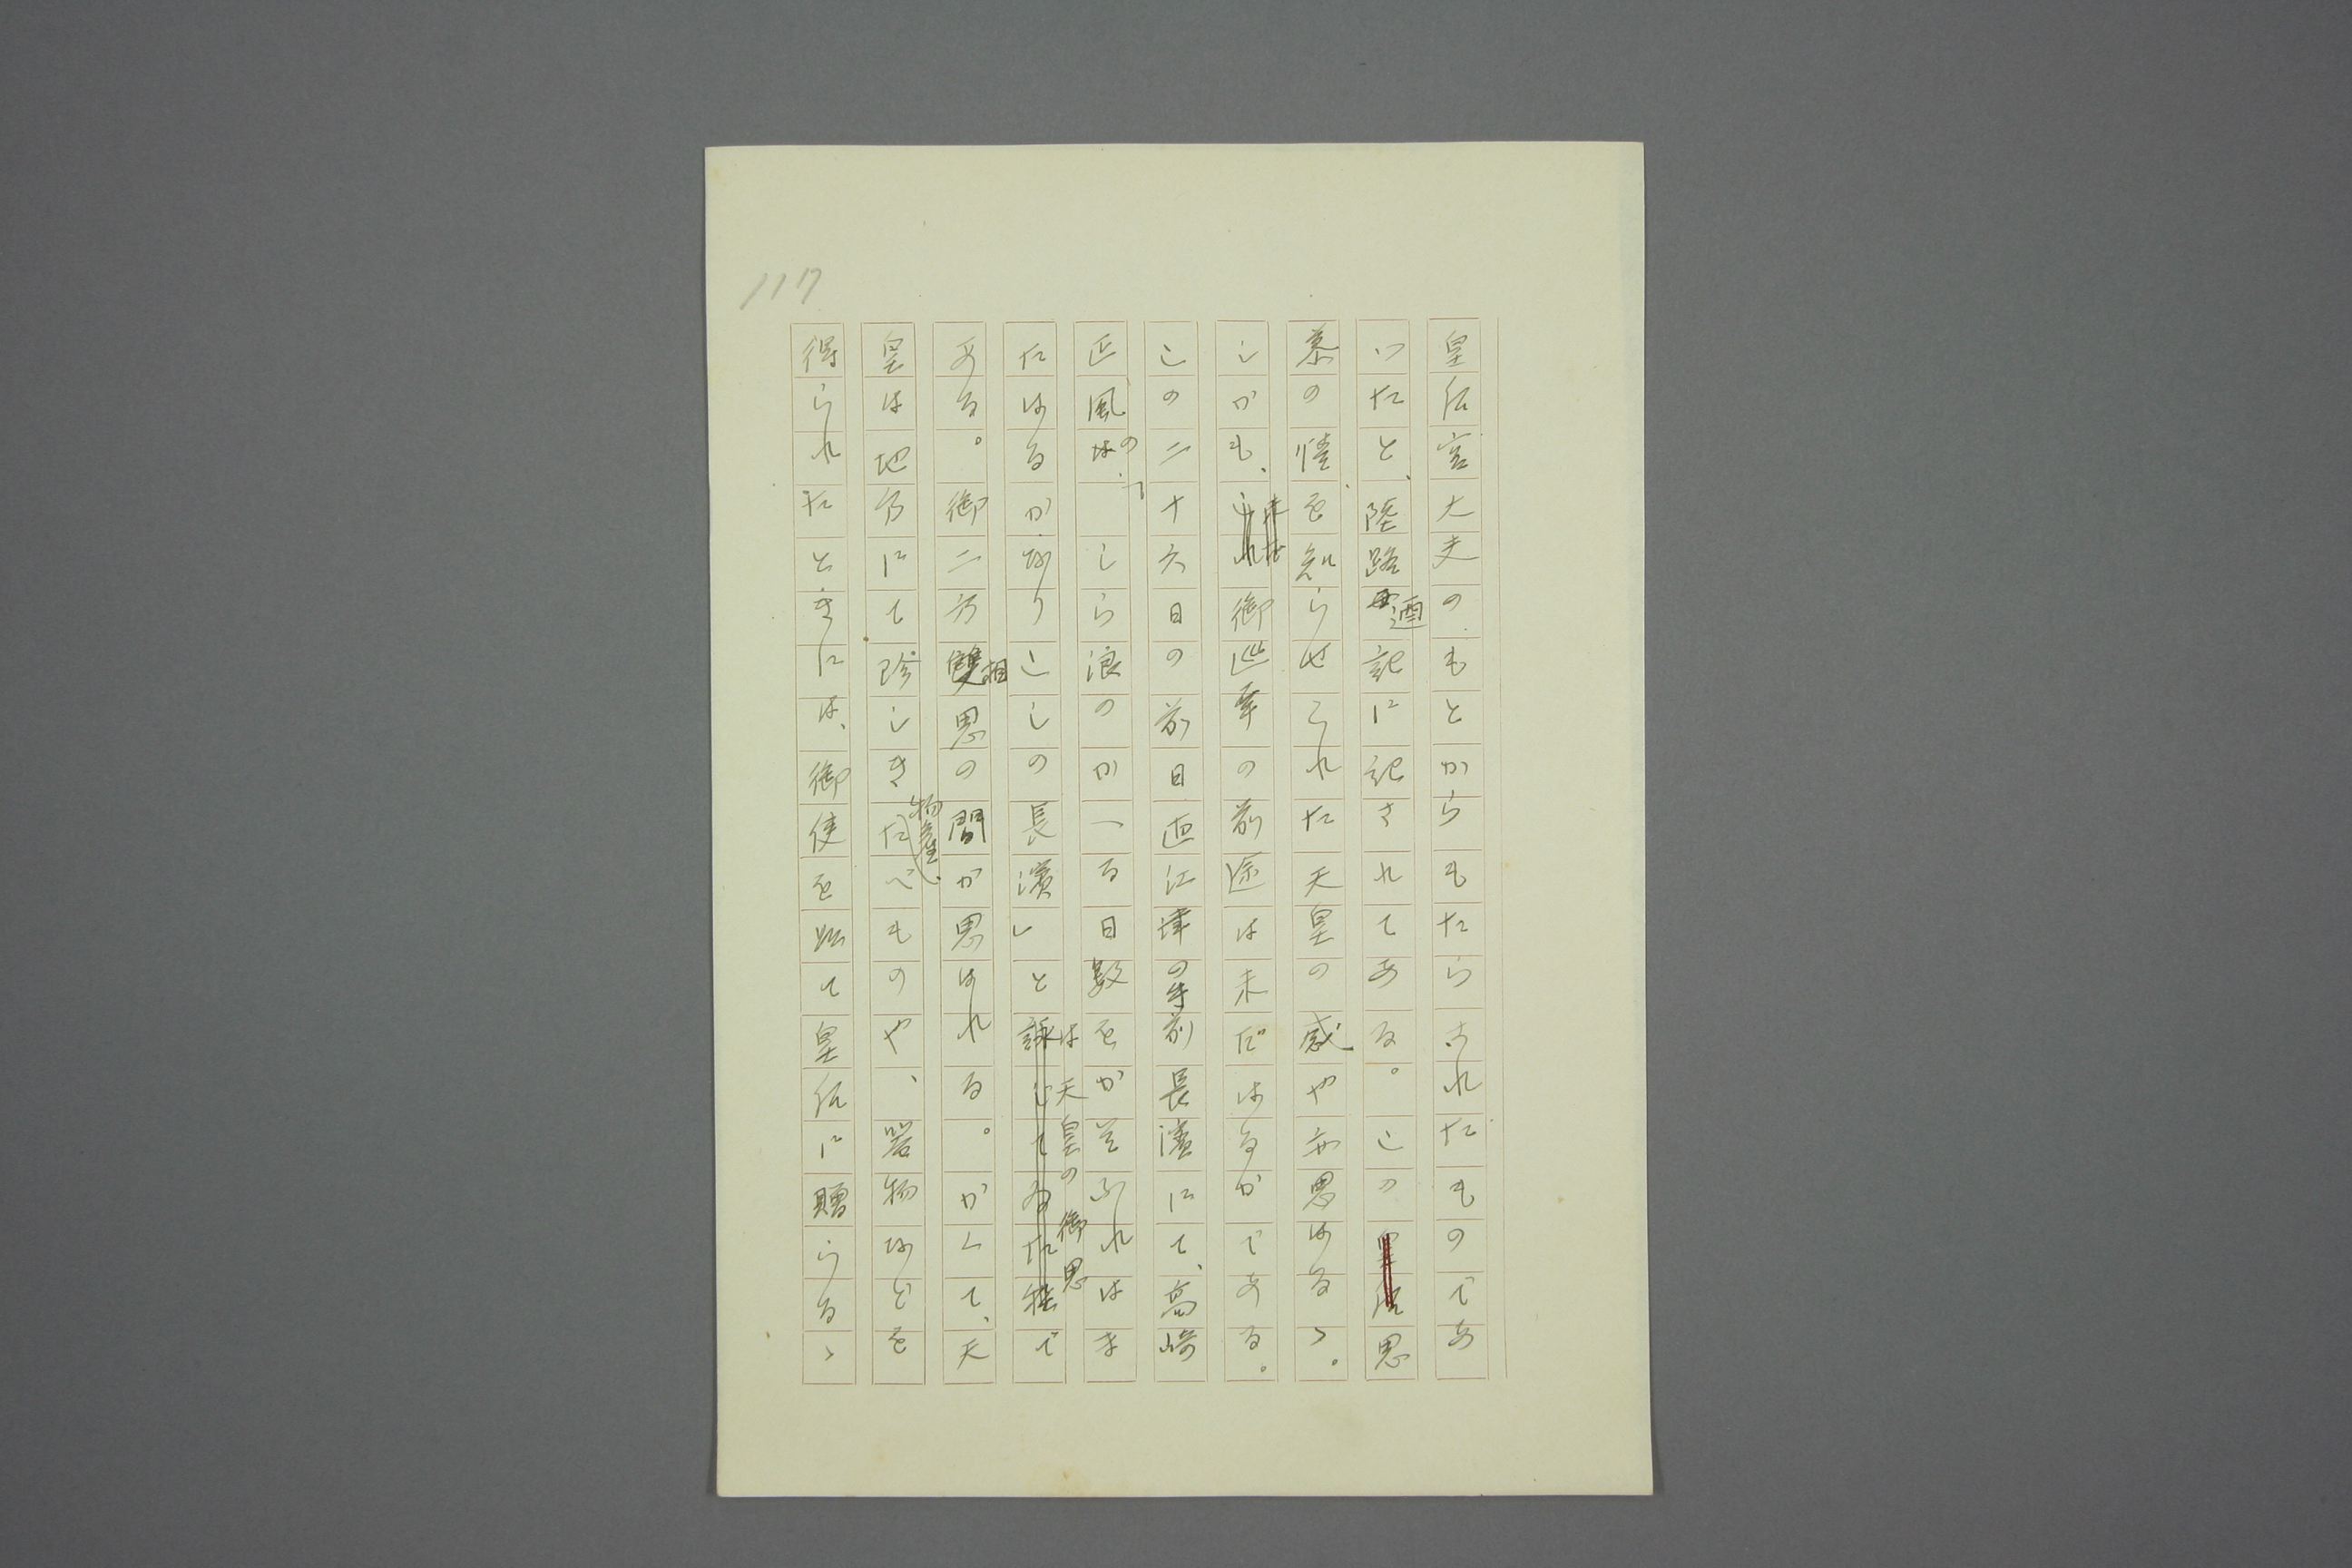 117
皇后宮大夫のもとからもたらされたものであ
つたと、陸路廼記に記されてある。この思
慕の情を知らせられた天皇の感や亦思はるゝ。
しかも、御巡幸の前途は未だはるかである。
この二十六日の前日直江津の手前長濱にて、高崎
正風の「しら浪のかへる日数をかぞふれはま
たはるかなりこしの長濱」とは天皇の御思で
ある。御二方相思の間が思はれる。かくて、天
皇は地方にて珍しき物産、たべものや、器物などを
得られたときには、御使を以て皇后に贈らるゝ